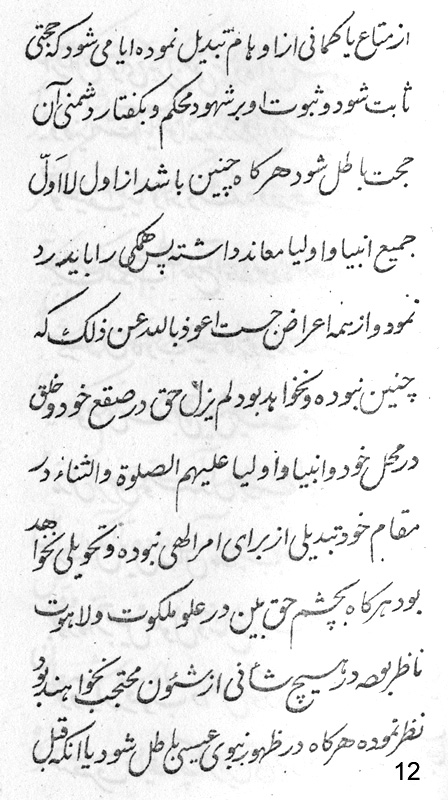 از متاع یا گمانی از اوهام تبدیل نموده ایا می شود که حجتی
ثابت شود و ثبوت او بر شهود محکم و بگفتار دشمنی آن
حجت باطل شود هرکاه چنین باشد از اول لا اوّل
جمیع انبیا و اولیا معاند داشته پس همکی را باید رد
نمود و از همه اعراض جست اعوذ بالله عن ذلک که
چنین نبوده و نخواهد بود لم یزل حق در صقع خود و خلق
در محل خود و انبیا و اولیا علیهم الصلوة والثناء در
مقام خود تبدیلی از برای امر الهی نبوده و تحویلی نخواهد
بود هرکاه بچشم حق بین در علو ملکوت ولاهوت
ناظر بوده در هیچ شأنی از شئون محتجب نخواهند بود
نظر نموده هرکاه در ظهور نبوی عیسی باطل شود یا انکه قبل
12